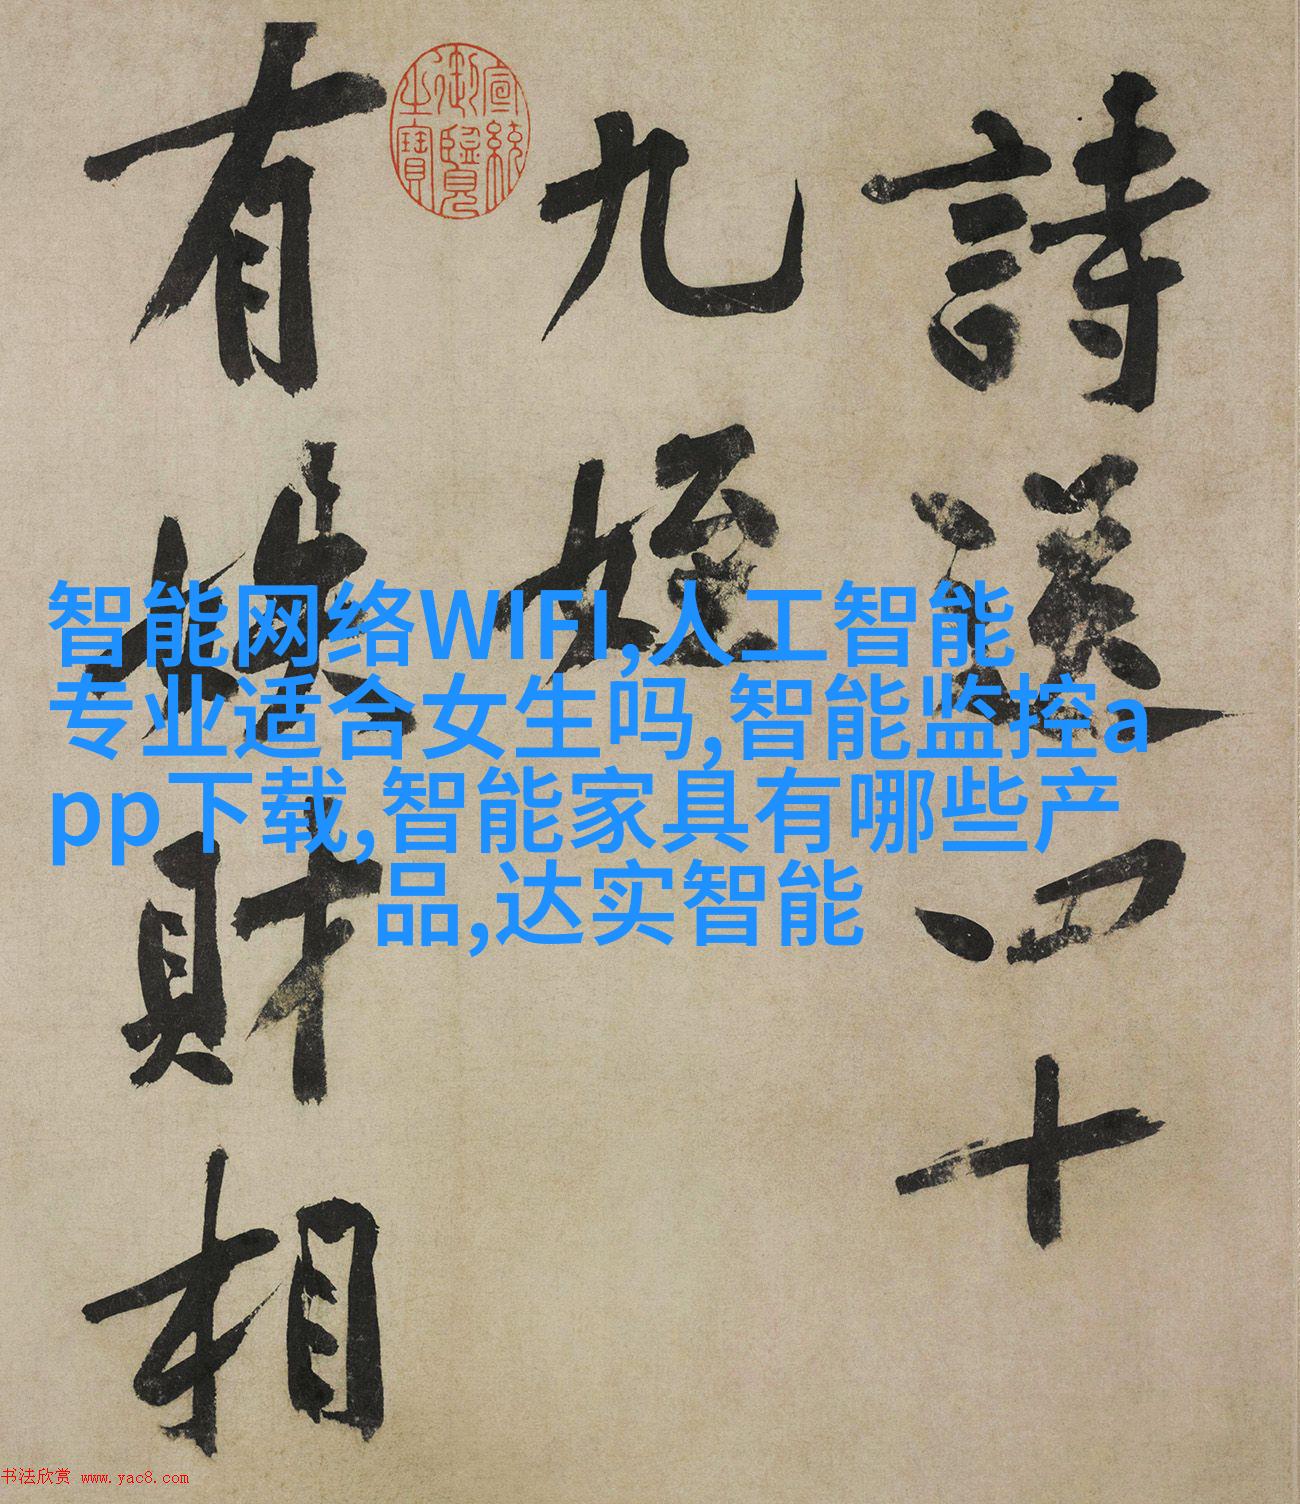 詩送四十
九姪
有娘財相
宣統
御覽
之寶
智能网络WIFI,人工智能
专业适合女生吗,智能监控a
pp下载,智能家具有哪些产
品,达实智能
书法欣赏 www.yac8.com